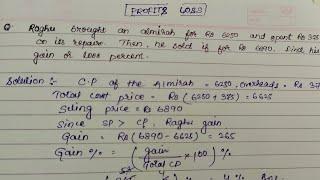 PROFIT & LOSS
Q. Raghu brought an almirah for Rs 6250 and spent Rs 375
on its repair. Then, he sold it for Rs 6890. Find his
gain or loss percent.
Solution :- C.P of the Almirah = 6250, overheads = Rs 37
Total cost price = Rs (6250 + 375) = 6625
Selling price = Rs 6890
Since SP > CP, Raghu gain
Gain = Rs (6890 - 6625) = 265
Gain % = (gain / Total CP × 100) %